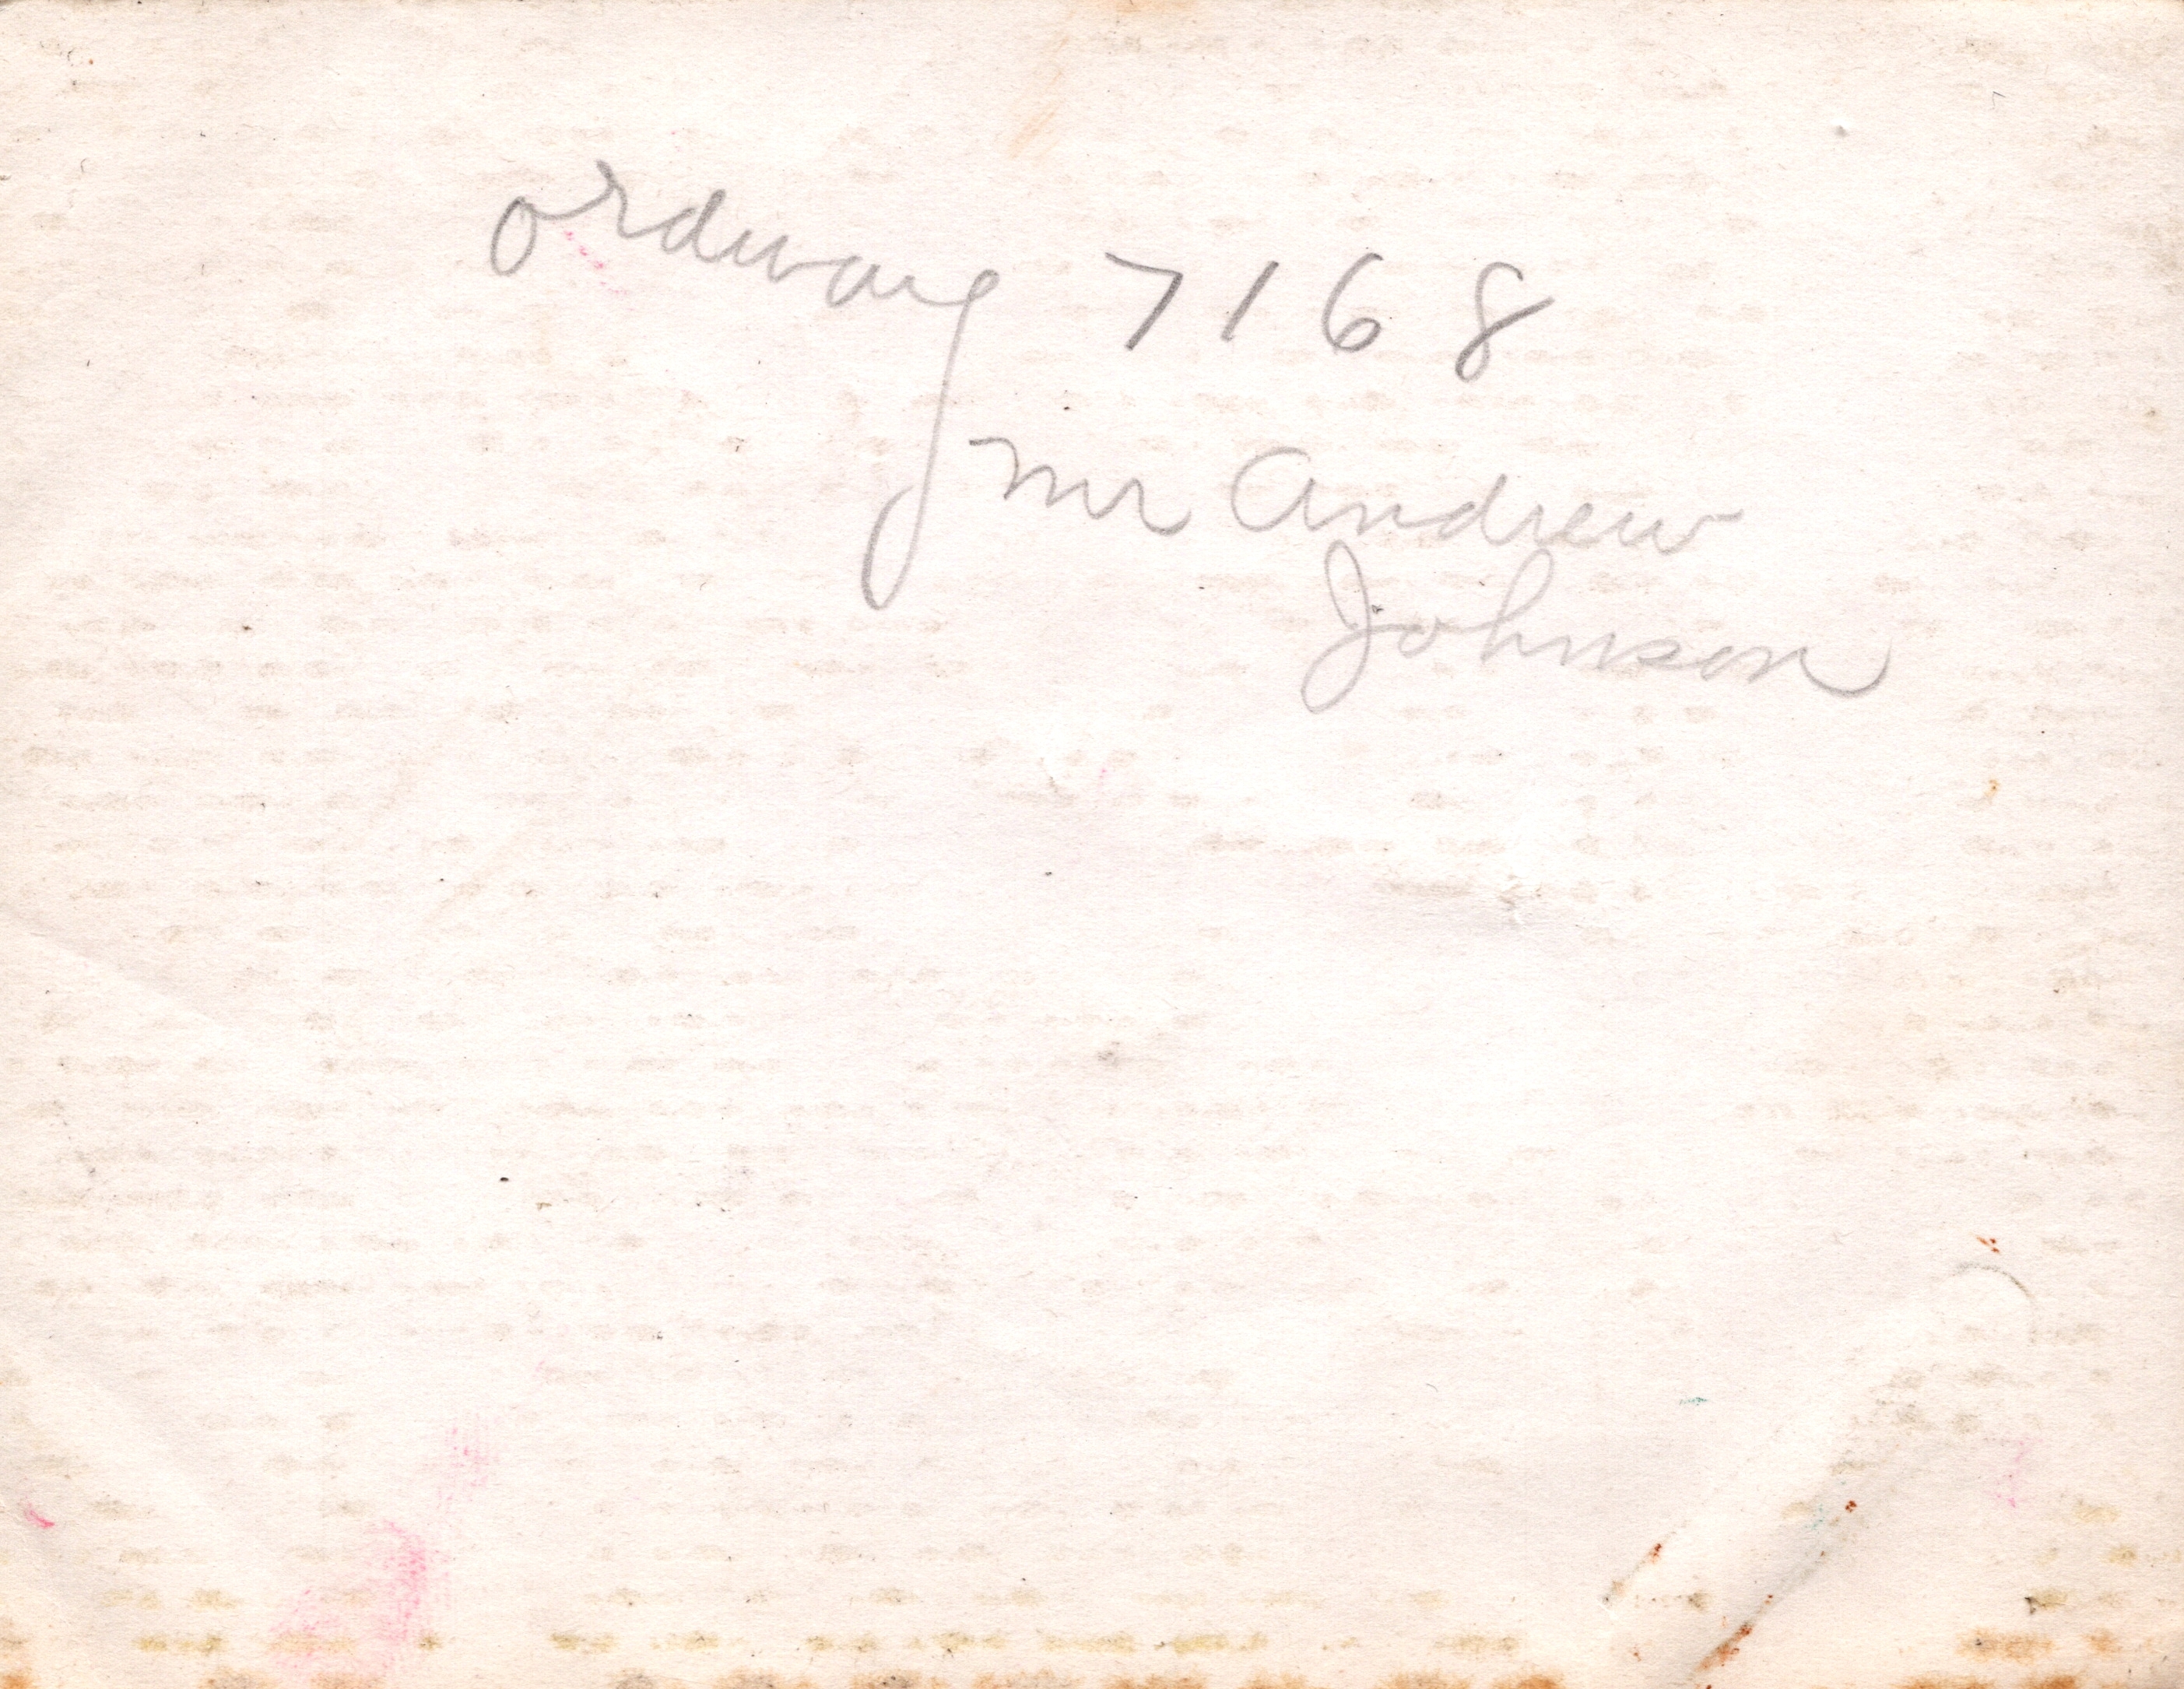 ordway 7168
Mr Andrew
Johnson